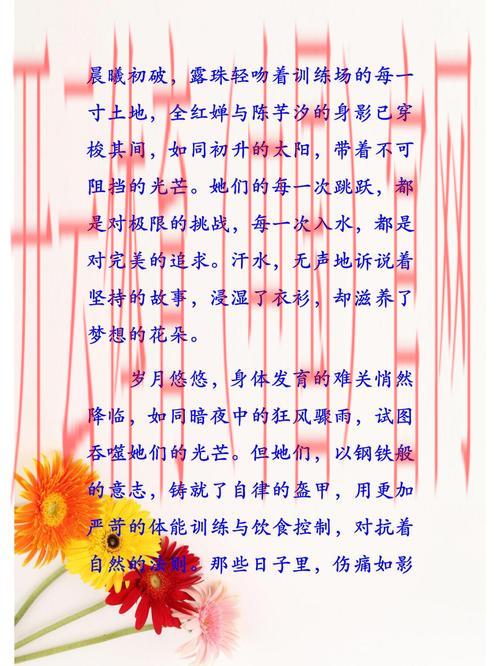 晨曦初破，露珠轻吻着训练场的每一
寸土地，全红婵与陈芋汐的身影已穿
梭其间，如同初升的太阳，带着不可
阻挡的光芒。她们的每一次跳跃，都
是对极限的挑战，每一次入水，都是
对完美的追求。汗水，无声地诉说着
坚持的故事，浸湿了衣衫，却滋养了
梦想的花朵。
岁月悠悠，身体发育的难关悄然
降临，如同暗夜中的狂风骤雨，试图
吞噬她们的光芒。但她们，以钢铁般
的意志，铸就了自律的盔甲，用更加
严苛的体能训练与饮食控制，对抗着
自然的法则。那些日子里，伤痛如影